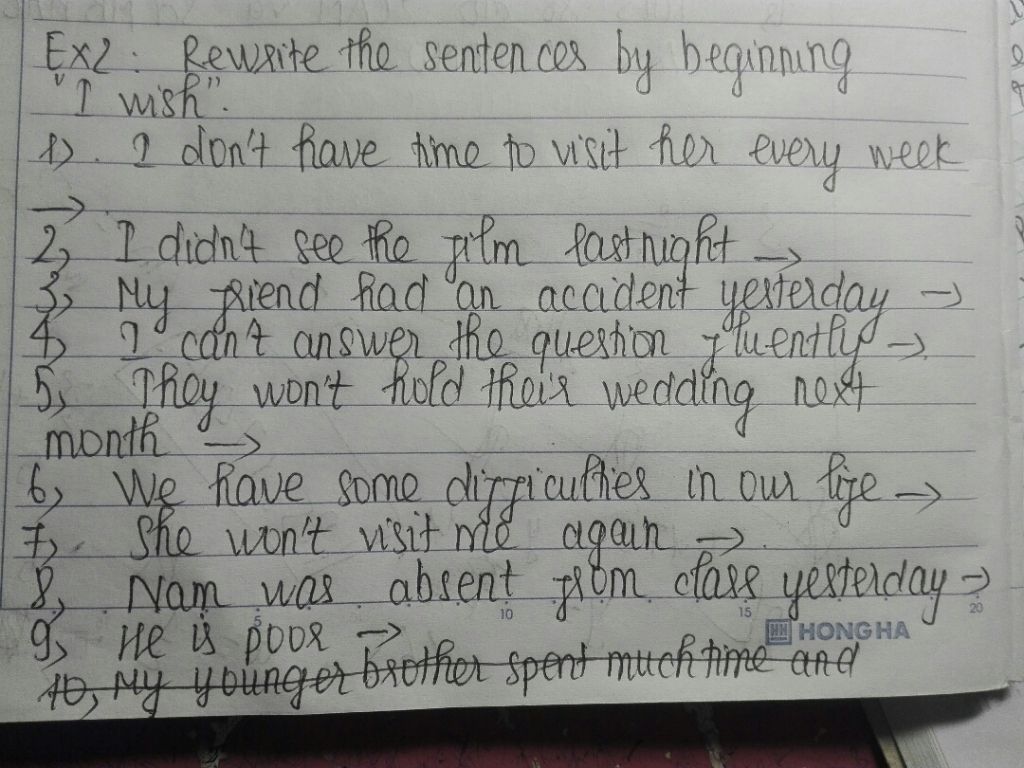 Ex2: Rewrite the sentences by beginning
"I wish".
1). I don't have time to visit her every week
→
2, I didn't see the film last night →
3, My friend had an accident yesterday →
4, I can't answer the question fluently →
5, They won't hold their wedding next
month →
6, We have some difficulties in our life →
7, She won't visit me again →
8, Nam was absent from class yesterday →
5 10 15 20
9, He is poor →
HH HONG HA
10, My younger brother spent much time and